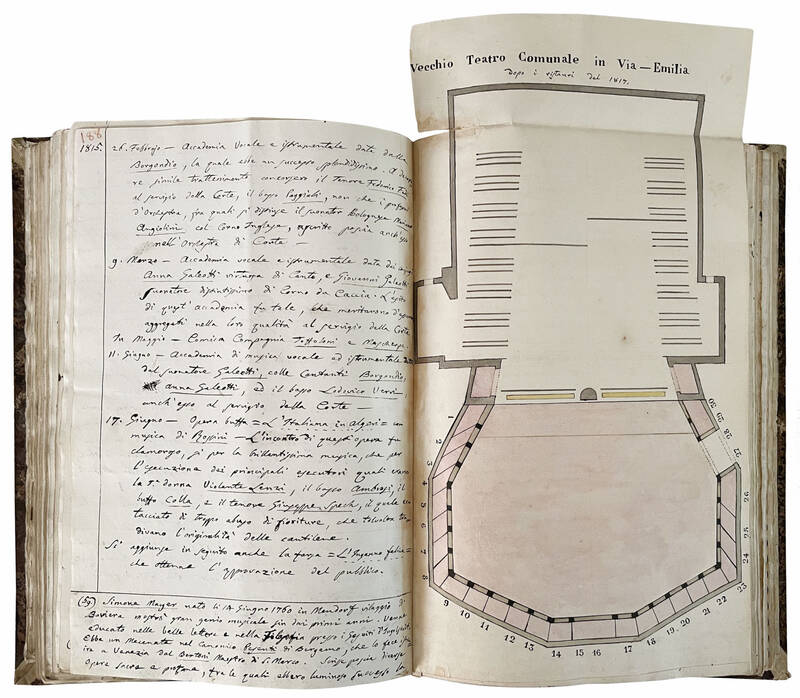 188
1815. 26. Febbrajo — Accademia Vocale e istrumentale data dalla
Borgondio, la quale ebbe un successo splendidissimo. A
re simile trattenimento concorsero il tenore Federico
al servigio della Corte, il basso Poggiali, non che i
d'Orchestra, fra quali si distinse il suonator Bolognese
Angiolini col Corno Inglese, agurito poscia anch'
nell'Orchestra di Corte —
9. Marzo — Accademia vocale e istrumentale data dai
Anna Galeotti virtuosa di Canto, e Giovanni Galeotti
suonatore distintissimo di Corno da Caccia. L'esito
di quest'accademia fu tale, che meritarono d'essere
aggregati nella loro qualità al servigio della Corte
In Maggio — Comica Compagnia Toffoloni e
11. Giugno — Accademia di musica vocale ed istrumentale
dal suonatore Galeotti, colle Cantanti Borgondio,
Anna Galeotti, ed il basso Lodovico Verri,
anch'esso al servigio della Corte —
17. Giugno — Opera buffa = L'Italiana in Algeri = con
musica di Rossini — L'incontro di quest'opera fu
clamoroso, sì per la brillantissima musica, che per
l'esecuzione dei principali esecutori quali erano
la 1a donna Violante Lenzi, il basso Ambrosi, il
buffo Colla, e il tenore Giuseppe Spech, il quale
tacciato di troppo abuso di fioriture, che talvolta
divano l'originalità delle cantilene.
Si aggiunse in seguito anche la farsa = L'Inganno felice =
che ottenne l'approvazione del pubblico.
(59) Simone Mayer nato li 14 Giugno 1760 in Mendorf villaggio di
Baviera mostrò gran genio musicale sin dai primi anni. Venne
educato nelle belle lettere e nella filosofia presso i Gesuiti d'
Ebbe un Mecenate nel Canonico Pesenti di Bergamo, che lo fece
ire a Venezia dal Bertoni Maestro di S. Marco. Scrisse poscia diverse
Opere sacre e profane, fra le quali ebbero luminoso successo
Vecchio Teatro Comunale in Via — Emilia
Dopo i ristauri del 1817.
1
2
3
4
5
6
7
8
9
10
11
12
13
14
15
16
17
18
19
20
21
22
23
24
25
26
27
28
29
30